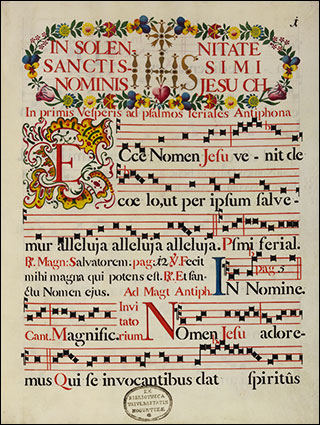 j
IN SOLEN- NITATE
SANCTIS IHS SIMI
NOMINIS JESU CH.
In primis Vesperis ad psalmos feriales Antiphona
ECCè Nomen Jesu ve - nit de
coe lo, ut per ipsum salve-
mur alleluja alleluja alleluja. Psmi ferial.
R. Magn: Salvatorem. pag: 12 V. Fecit
mihi magna qui potens est. R. Et san-
ctu Nomen ejus. Ad Magt Antiph. IN Nomine.
pag. 5
Cant. Magnific. Invi tato rium. NOmen Jesu adore-
mus Qui se invocantibus dat spiritûs
EX BIBLIOTHECA UNIVERSITATIS MOGUNTINAE